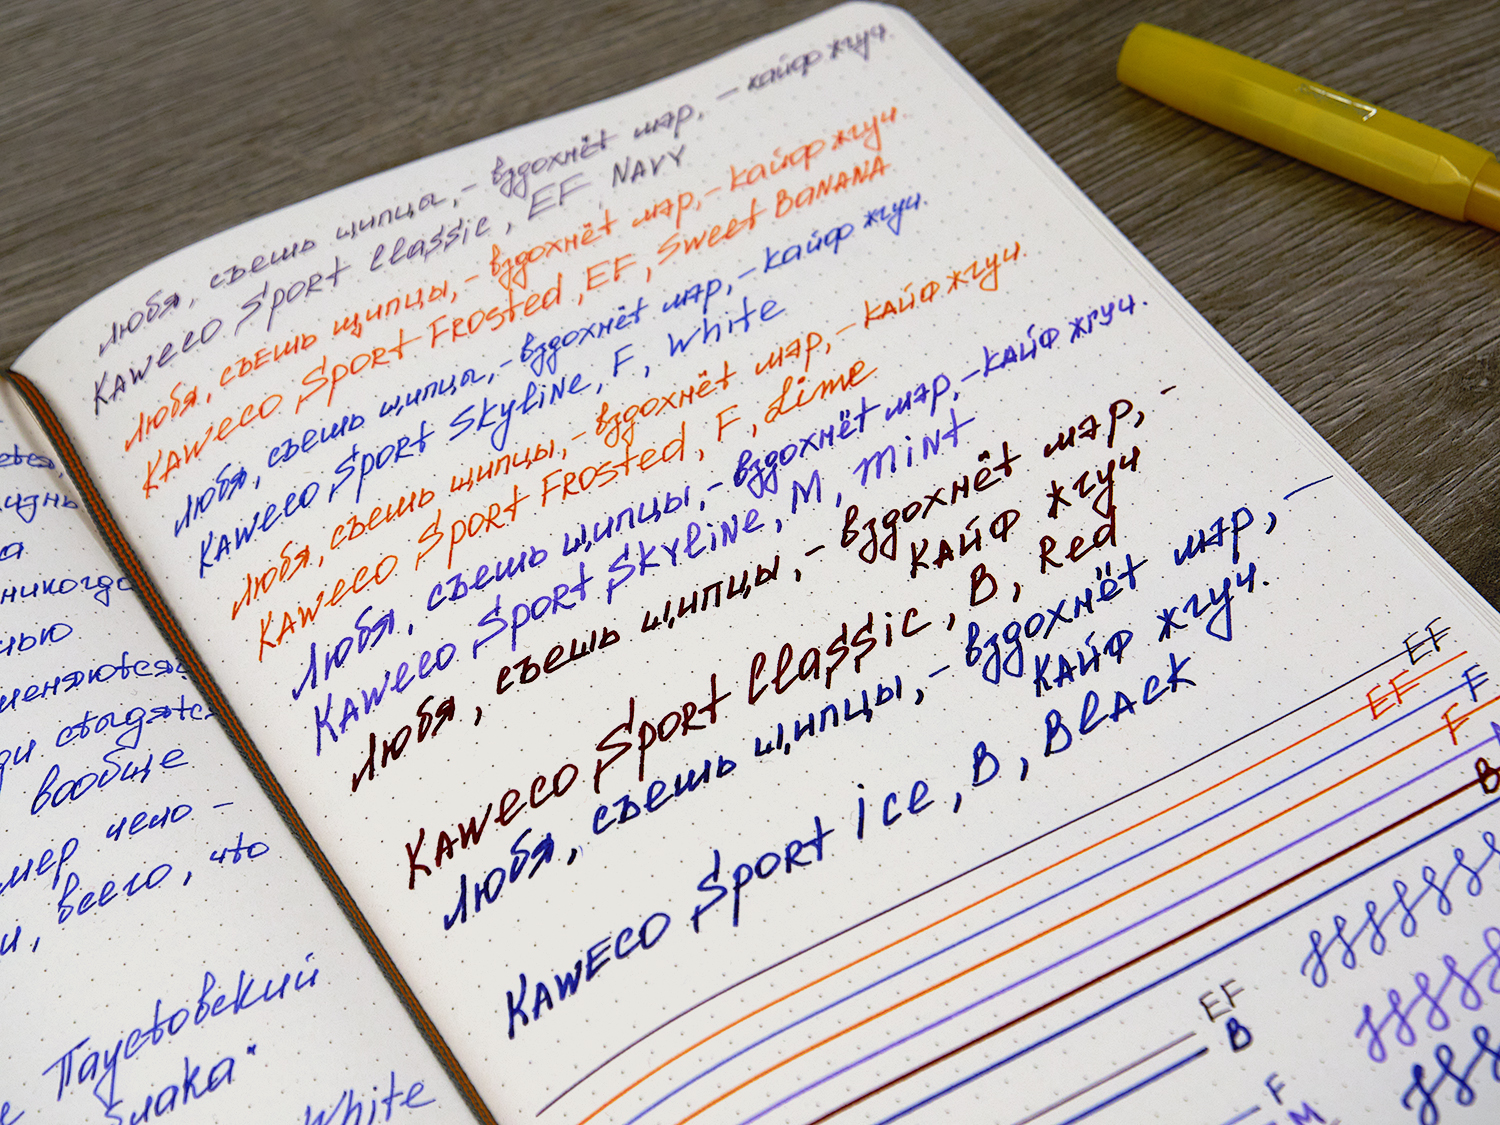 ется,
жизнь
никогда
меняются
стыдятся
вообще
мер чело -
, всего, что
Паустовский
White
Любя, съешь щипцы, - вздохнёт мэр, - кайф жгуч.
Kaweco Sport Classic, EF, NAVY
Любя, съешь щипцы, - вздохнёт мэр, - кайф жгуч.
Kaweco Sport Frosted, EF, Sweet Banana
Любя, съешь щипцы, - вздохнёт мэр, - кайф жгуч.
Kaweco Sport Skyline, F, White
Любя, съешь щипцы, - вздохнёт мэр, - кайф жгуч.
Kaweco Sport Frosted, F, Lime
Любя, съешь щипцы, - вздохнёт мэр, - кайф жгуч.
Kaweco Sport Skyline, M, Mint
Любя, съешь щипцы, - вздохнёт мэр, -
кайф жгуч
Kaweco Sport Classic, B, Red
Любя, съешь щипцы, - вздохнёт мэр, -
кайф жгуч.
Kaweco Sport ice, B, Black
EF
EF
F
F
B
EF
B
F
M